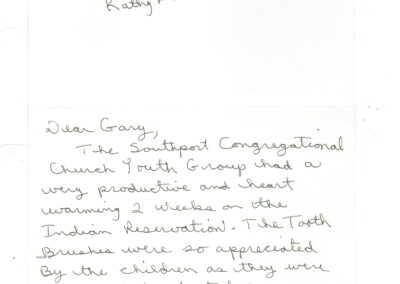 Kathy
Dear Gary,
The Southport Congregational
Church Youth Group had a
very productive and heart
warming 2 weeks on the
Indian Reservation. The Tooth
Brushes were so appreciated
By the children as they were